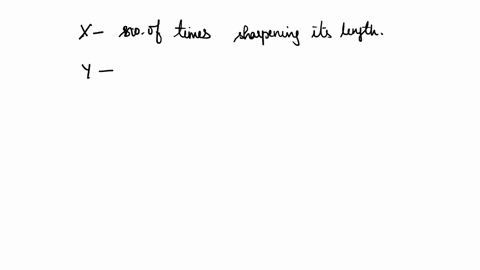 X - no. of times sharpening its length.
Y -